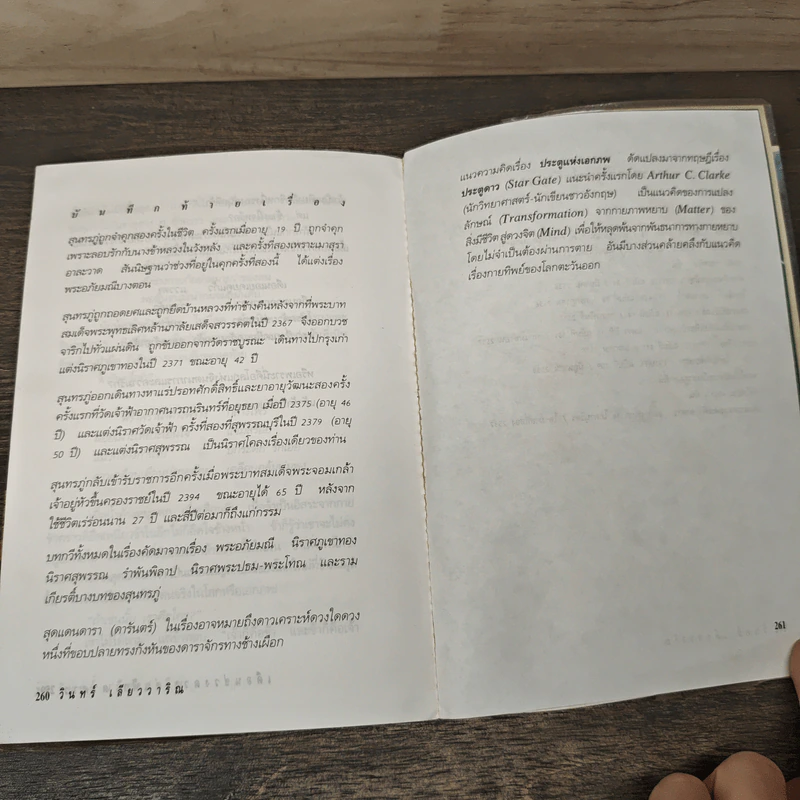 บันทึกท้ายเรื่อง
สุนทรภู่ถูกจำคุกสองครั้งในชีวิต ครั้งแรกเมื่ออายุ 19 ปี ถูกจำคุก
เพราะลอบรักกับนางข้าหลวงในวังหลัง และครั้งที่สองเพราะเมาสุรา
อาละวาด สันนิษฐานว่าช่วงที่อยู่ในคุกครั้งที่สองนี้ ได้แต่งเรื่อง
พระอภัยมณีบางตอน
สุนทรภู่ถูกถอดยศและถูกยึดบ้านหลวงที่ท่าช้างคืนหลังจากที่พระบาท
สมเด็จพระพุทธเลิศหล้านภาลัยเสด็จสวรรคตในปี 2367 จึงออกบวช
จาริกไปทั่วแผ่นดิน ถูกขับออกจากวัดราชบูรณะ เดินทางไปกรุงเก่า
แต่งนิราศภูเขาทองในปี 2371 ขณะอายุ 42 ปี
สุนทรภู่ออกเดินทางหาแร่ปรอทศักดิ์สิทธิ์และยาอายุวัฒนะสองครั้ง
ครั้งแรกที่วัดเจ้าฟ้าอากาศนารถนรินทร์ที่อยุธยา เมื่อปี 2375 (อายุ 46
ปี) และแต่งนิราศวัดเจ้าฟ้า ครั้งที่สองที่สุพรรณบุรีในปี 2379 (อายุ
50 ปี) และแต่งนิราศสุพรรณ เป็นนิราศโคลงเรื่องเดียวของท่าน
สุนทรภู่กลับเข้ารับราชการอีกครั้งเมื่อพระบาทสมเด็จพระจอมเกล้า
เจ้าอยู่หัวขึ้นครองราชย์ในปี 2394 ขณะอายุได้ 65 ปี หลังจาก
ใช้ชีวิตเร่ร่อนนาน 27 ปี และสี่ปีต่อมาก็ถึงแก่กรรม
บทกวีทั้งหมดในเรื่องคัดมาจากเรื่อง พระอภัยมณี นิราศภูเขาทอง
นิราศสุพรรณ รำพันพิลาป นิราศพระปธม-พระโทณ และราม
เกียรติ์บางบทของสุนทรภู่
สุดแดนดารา (ดารันตร์) ในเรื่องอาจหมายถึงดาวเคราะห์ดวงใดดวง
หนึ่งที่ขอบปลายทรงกังหันของดาราจักรทางช้างเผือก
260 วินทร์ เลียววาริณ
แนวความคิดเรื่อง ประตูแห่งเอกภพ ดัดแปลงมาจากทฤษฎีเรื่อง
ประตูดาว (Star Gate) แนะนำครั้งแรกโดย Arthur C. Clarke
(นักวิทยาศาสตร์-นักเขียนชาวอังกฤษ) เป็นแนวคิดของการแปลง
ลักษณ์ (Transformation) จากกายภาพหยาบ (Matter) ของ
สิ่งมีชีวิต สู่ดวงจิต (Mind) เพื่อให้หลุดพ้นจากพันธนาการทางกายหยาบ
โดยไม่จำเป็นต้องผ่านการตาย อันมีบางส่วนคล้ายคลึงกับแนวคิด
เรื่องกายทิพย์ของโลกตะวันออก
261